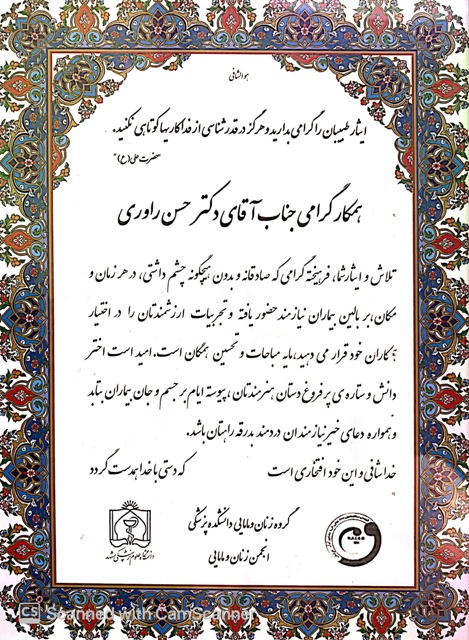 هوالشافی
ایثار طبیبان را گرامی بدارید و هرگز در قدرشناسی از فداکاریها کوتاهی نکنید.
حضرت علی (ع)
همکار گرامی جناب آقای دکتر حسن راوری
تلاش و ایثار شما، فرهیخته گرامی که صادقانه و بدون هیچگونه چشم داشتی، در هر زمان و
مکان، بر بالین بیماران نیازمند حضور یافته و تجربیات ارزشمندتان را در اختیار
همکاران خود قرار می دهید، مایه مباهات و تحسین همگان است. امید است اختر
دانش و ستاره ی پر فروغ دستان هنرمندتان، پیوسته ایام بر جسم و جان بیماران بتابد
و همواره دعای خیر نیازمندان دردمند بدرقه راهتان باشد.
خدا شافی و این خود افتخاری است که دستی با خدا همدست گردد
گروه زنان و مامایی دانشکده پزشکی
انجمن زنان و مامایی
دانشگاه علوم پزشکی مشهد
CS Scanned with CamScanner